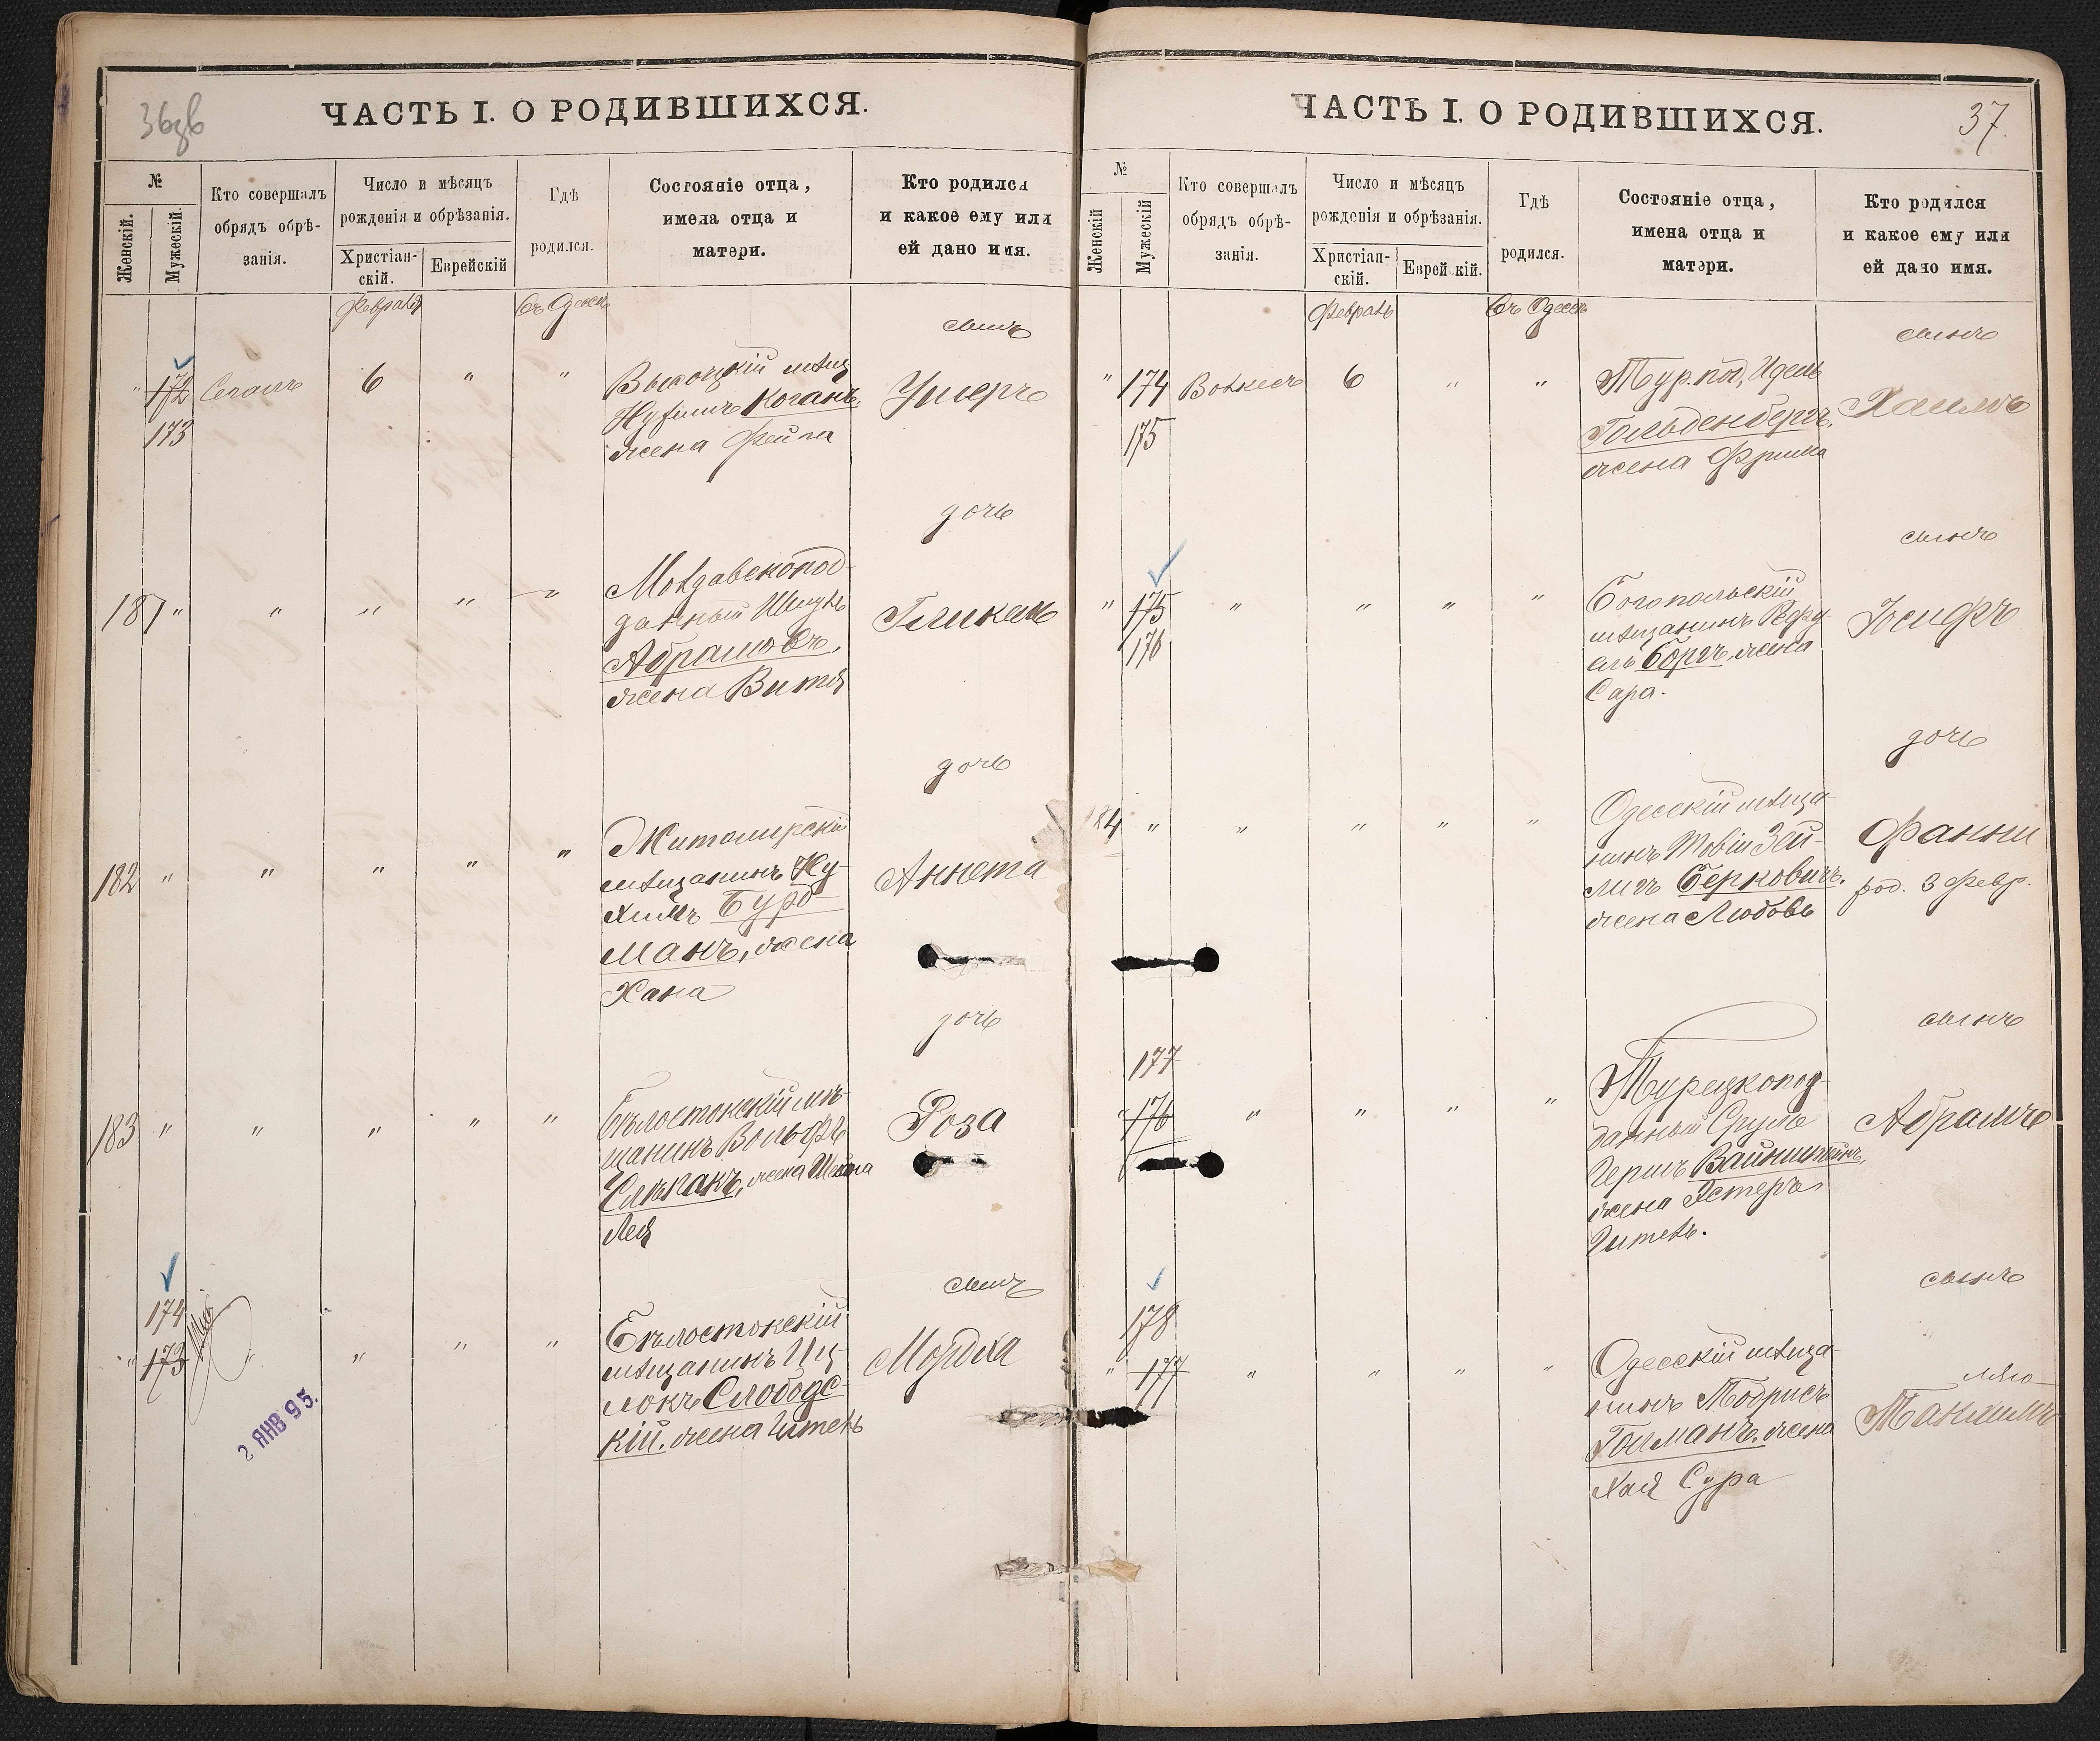 36зв
ЧАСТЬ I. О РОДИВШИХСЯ.
№
Женскій.
Мужескій.
Кто совершалъ
обрядъ обрѣ-
занія.
Число и мѣсяцъ
рожденія и обрѣзанія.
Христіан-
скій.
Еврейскій
Гдѣ
родился.
Состояніе отца,
имена отца и
матери.
Кто родился
и какое ему или
ей дано имя.
Февраля
Въ Одессѣ
сынъ
" 172 Сегалъ 6 " "
173
Высоцкій мѣщ
Когань,
жена Фейга
Ушеръ
дочь
181 " " " " "
Молдавскопод-
данный
Абрамовъ,
жена Витя
Гликель
дочь
182 " " " " "
Житомирскій
мѣщанинъ Ну-
химъ Бурд-
манъ, жена
Хана
Аннета
дочь
183 " " " " "
Бѣлостокскій мѣ-
щанинъ Вольфъ
жена
Лея
Роза
сынъ
174
" 173 " " " "
Бѣлостокскій
мѣщанинъ Иц-
Слободс-
кій. жена Гитель
Мордха
2 ЯНВ 95.
37.
ЧАСТЬ I. О РОДИВШИХСЯ.
№
Женскій
Мужескій
Кто совершалъ
обрядъ обрѣ-
занія.
Число и мѣсяцъ
рожденія и обрѣзанія.
Христіан-
скій.
Еврейскій.
Гдѣ
родился.
Состояніе отца,
имена отца и
матери.
Кто родился
и какое ему или
ей дано имя.
Февраль
Въ Одессѣ
сынъ
" 174 6 " "
175
Тур. под. Идель
Гольденбергъ,
жена Фрима
Хаимъ
сынъ
" 175 " " " "
176
Богопольскій
мѣщанинъ Рефу
елъ Боргъ, жена
Сара.
Іосифъ
дочь
184 " " " " "
Одесскій мѣща-
нинъ Товій Зей-
лигъ Берковичъ.
жена Любовь
Фанни
род. 3 Февр.
сынъ
177
" 176 " " " "
Турецкопод-
данный Сруль
Гершъ Вайнштейнъ,
жена Эстеръ
Гитель.
Абрамъ
сынъ
178
" 177 " " " "
Одесскій мѣща-
нинъ
Гойманъ. жена
Хая Сура